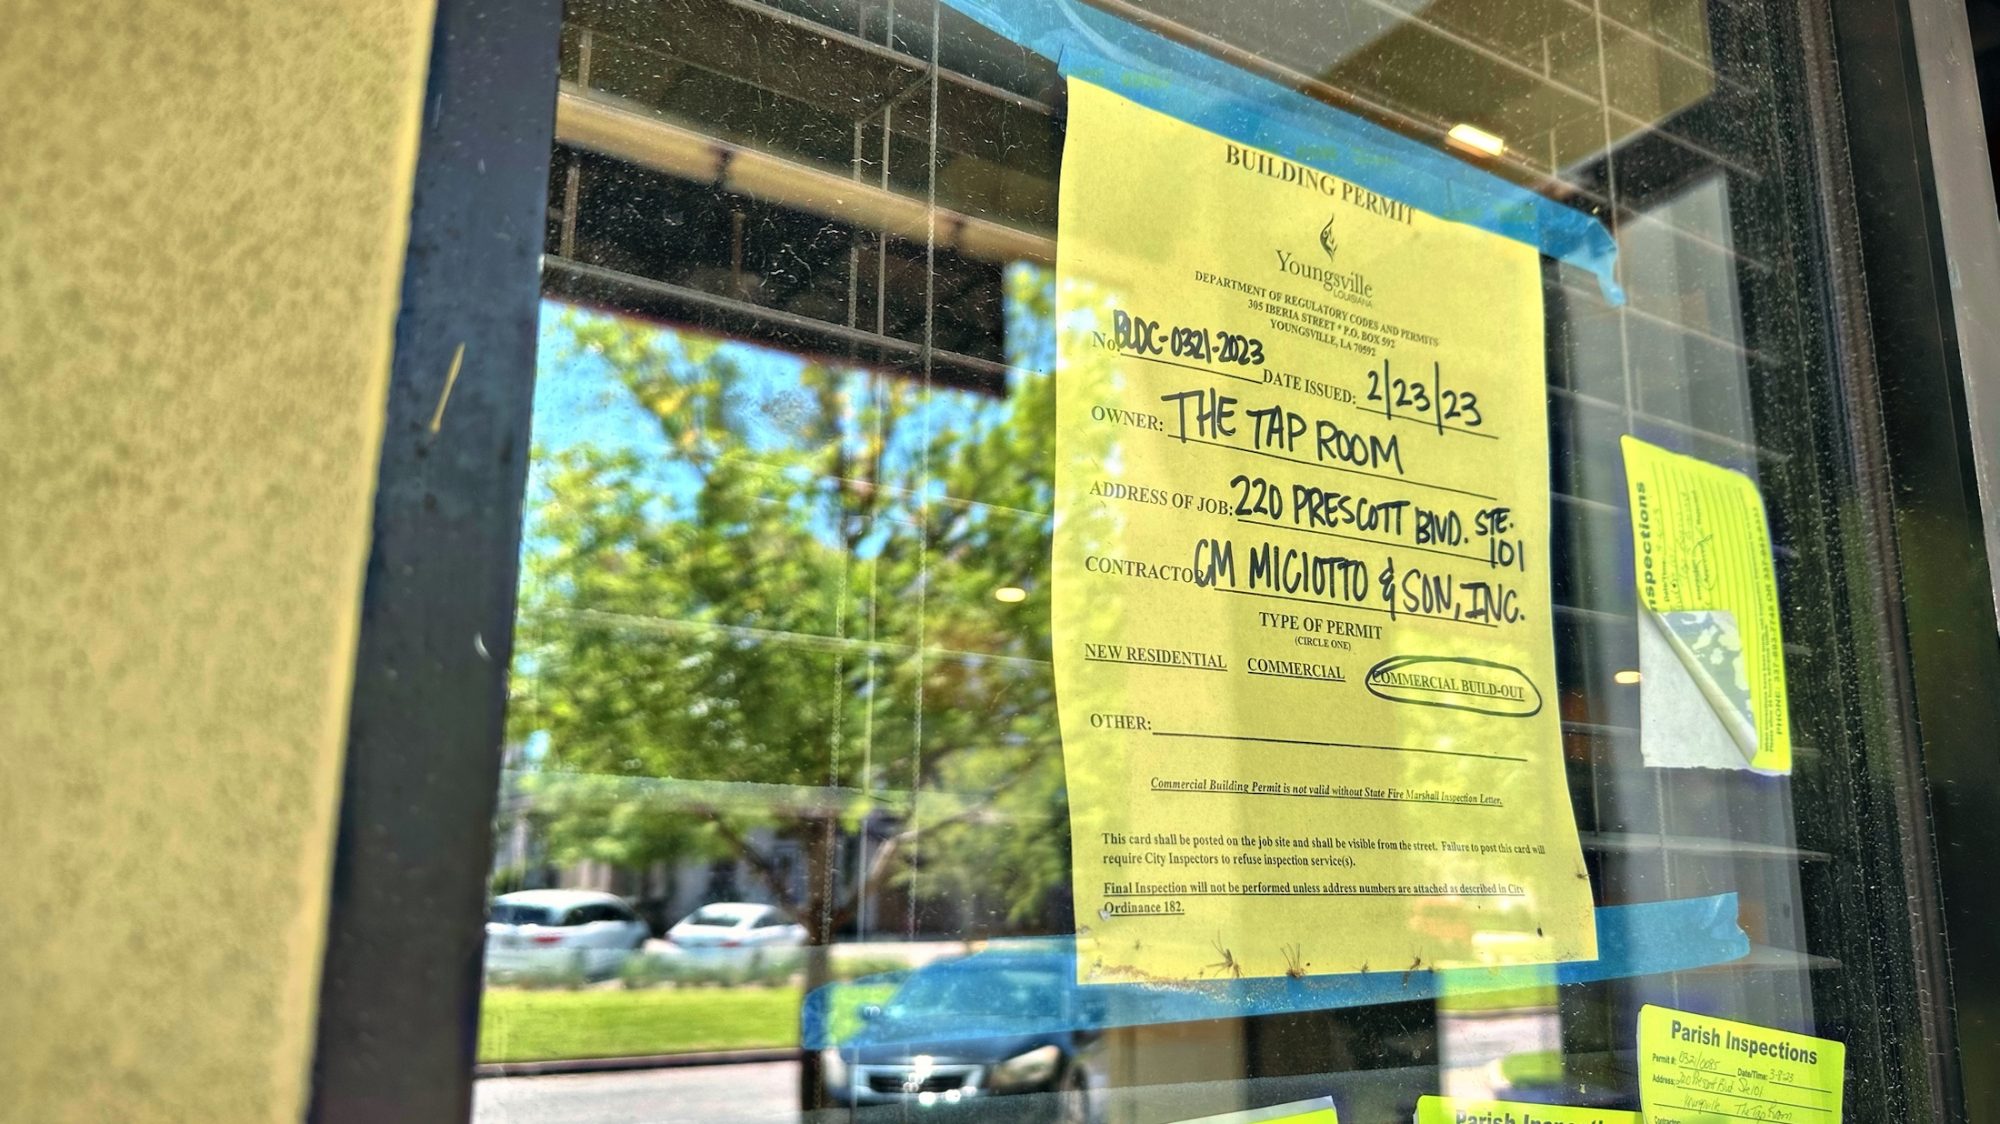 BUILDING PERMIT
Youngsville
LOUISIANA
DEPARTMENT OF REGULATORY CODES AND PERMITS
305 IBERIA STREET * P.O. BOX 592
YOUNGSVILLE, LA 70592
No. BLDC-0321-2023 DATE ISSUED: 2/23/23
OWNER: THE TAP ROOM
ADDRESS OF JOB: 220 PRESCOTT BLVD. STE. 101
CONTRACTO CM MICIOTTO & SON, INC.
TYPE OF PERMIT
(CIRCLE ONE)
NEW RESIDENTIAL COMMERCIAL COMMERCIAL BUILD-OUT
OTHER:
Commercial Building Permit is not valid without State Fire Marshall Inspection Letter.
This card shall be posted on the job site and shall be visible from the street. Failure to post this card will
require City Inspectors to refuse inspection service(s).
Final Inspection will not be performed unless address numbers are attached as described in City
Ordinance 182.
nspections
Date/Time:
Parish Inspections
Permit #: 0321/0085 Date/Time: 3-8-23
Address: 220 Prescott Blvd Ste 101
Youngsville The Tap Room
Parish Inspecti